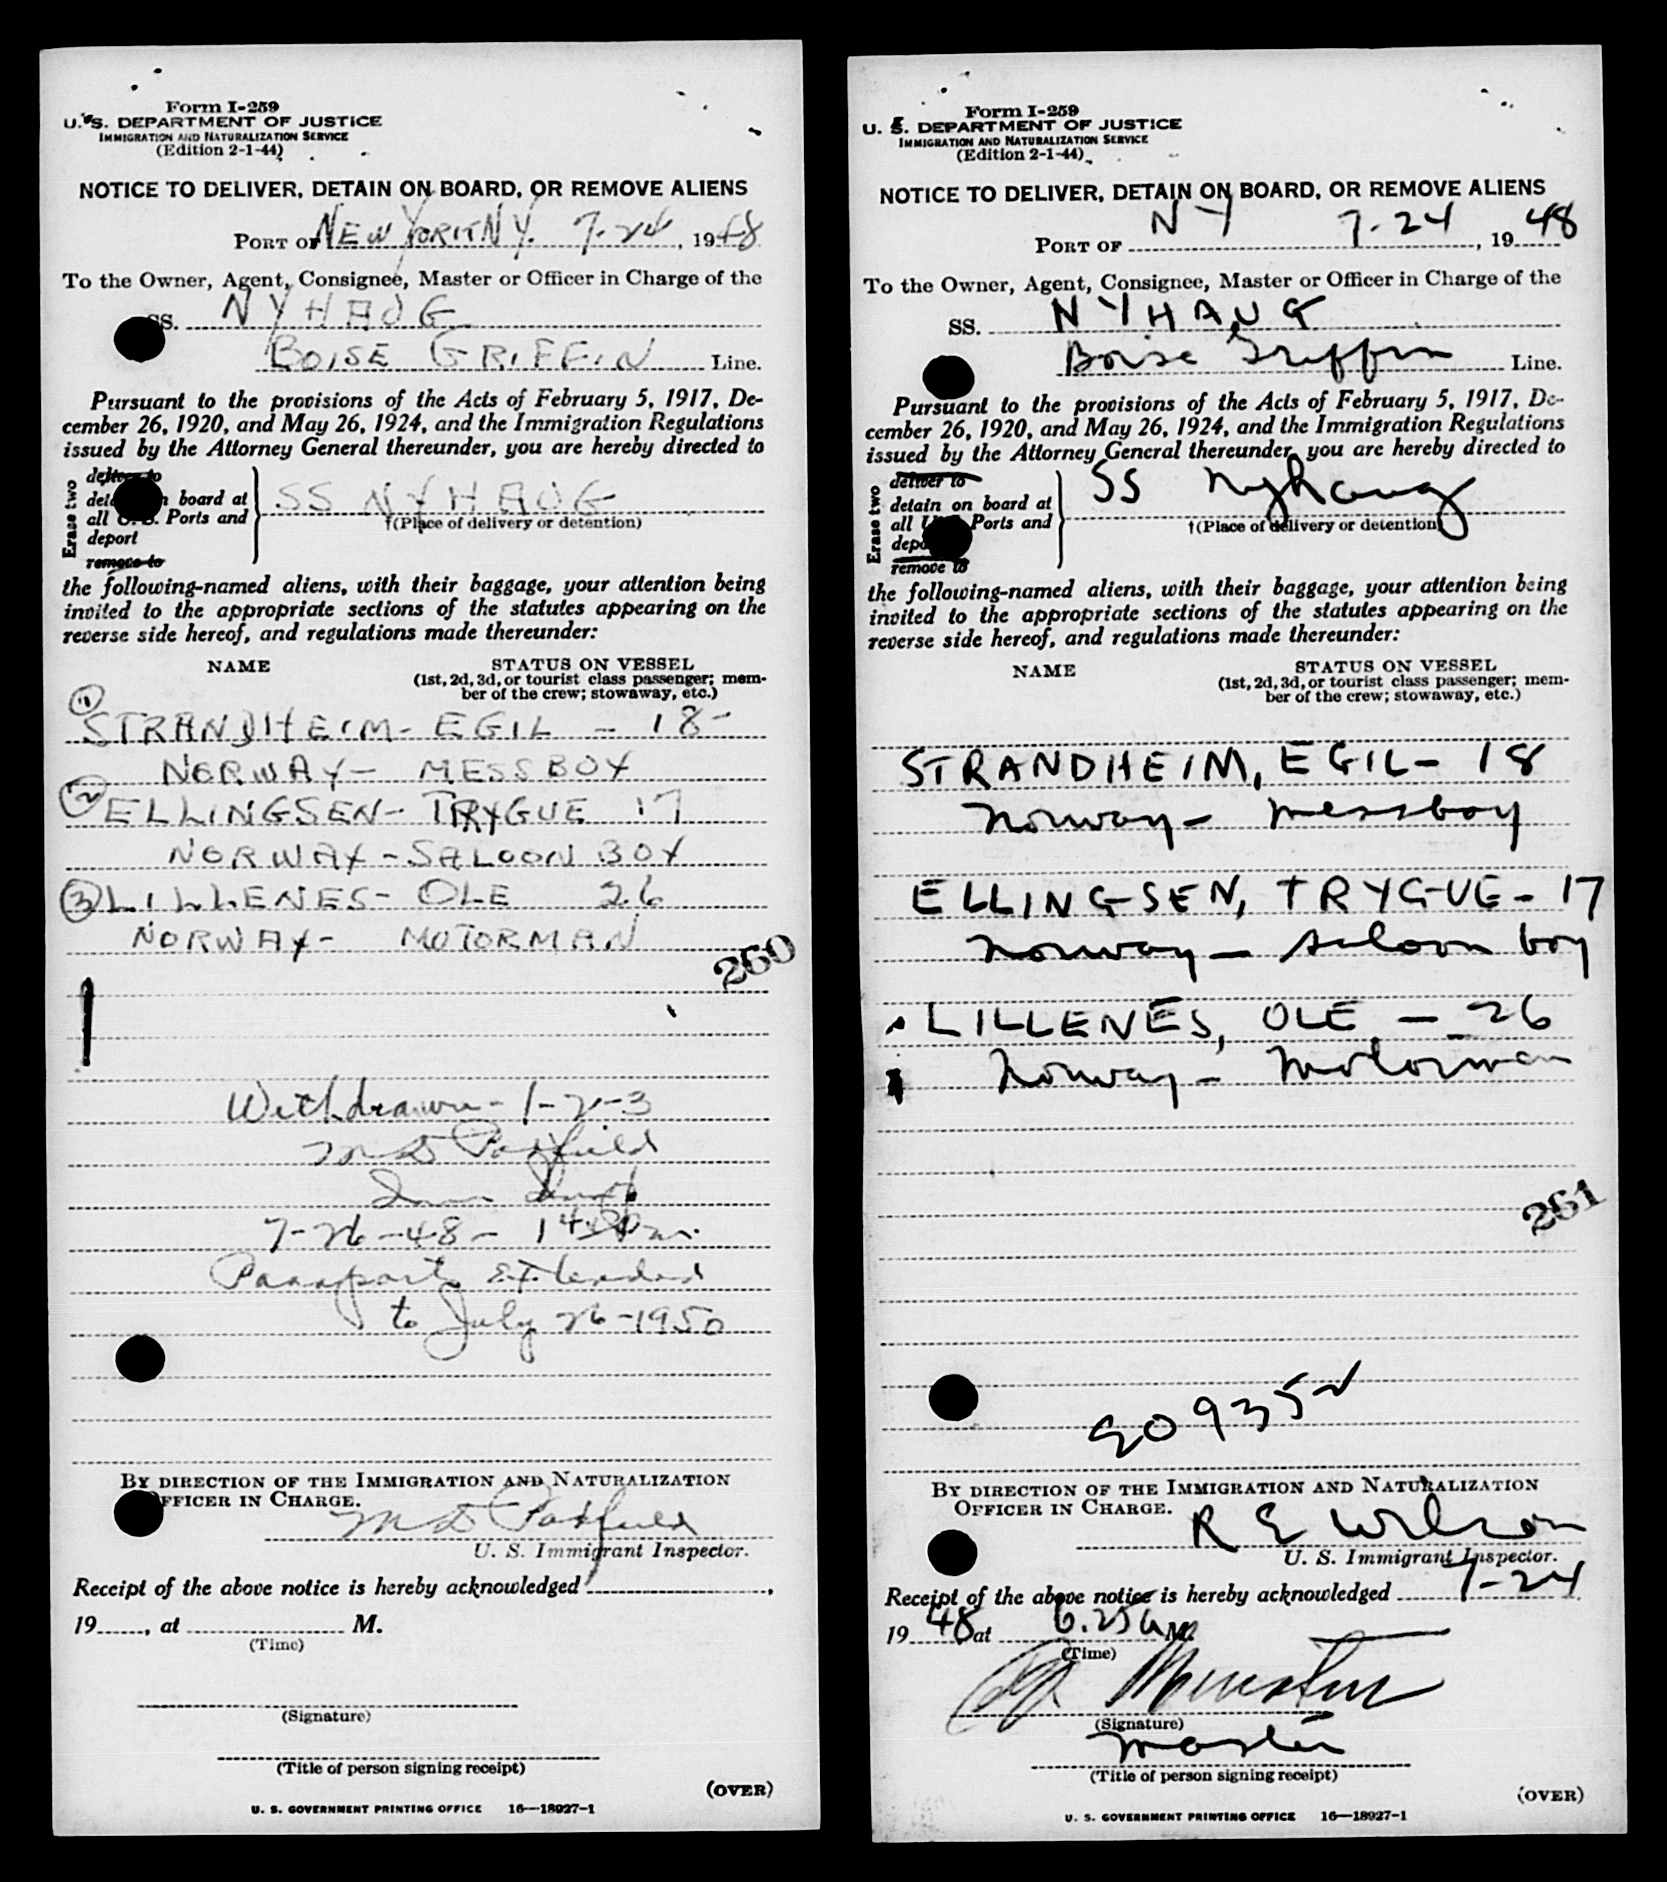 Form I-259
U. S. DEPARTMENT OF JUSTICE
IMMIGRATION AND NATURALIZATION SERVICE
(Edition 2-1-44)
NOTICE TO DELIVER, DETAIN ON BOARD, OR REMOVE ALIENS
PORT OF NEW YORK NY. 7-24, 1948
To the Owner, Agent, Consignee, Master or Officer in Charge of the
SS. NYHAUG
BOISE GRIFFIN Line.
Pursuant to the provisions of the Acts of February 5, 1917, De-
cember 26, 1920, and May 26, 1924, and the Immigration Regulations
issued by the Attorney General thereunder, you are hereby directed to
Erase two
deliver to
detain on board at
all U. S. Ports and
deport
remove to
SS NYHAUG
†(Place of delivery or detention)
the following-named aliens, with their baggage, your attention being
invited to the appropriate sections of the statutes appearing on the
reverse side hereof, and regulations made thereunder:
NAME STATUS ON VESSEL
(1st, 2d, 3d, or tourist class passenger; mem-
ber of the crew; stowaway, etc.)
(1)
STRANDHEIM - EGIL - 18 -
NORWAY - MESSBOY
(2) ELLINGSEN - TRYGUE 17
NORWAY - SALOON BOY
(3) LILLENES - OLE 26
NORWAY - MOTORMAN
260
Withdrawn - 1-2-3
M D Paxfield
7-26-48 -
Passports Extended
to July 26-1950
BY DIRECTION OF THE IMMIGRATION AND NATURALIZATION
OFFICER IN CHARGE.
M D Paxfield
U. S. Immigrant Inspector.
Receipt of the above notice is hereby acknowledged ,
19 , at M.
(Time)
(Signature)
(Title of person signing receipt)
(OVER)
U. S. GOVERNMENT PRINTING OFFICE 16—18927-1
Form I-259
U. S. DEPARTMENT OF JUSTICE
IMMIGRATION AND NATURALIZATION SERVICE
(Edition 2-1-44)
NOTICE TO DELIVER, DETAIN ON BOARD, OR REMOVE ALIENS
PORT OF NY 7-24, 1948
To the Owner, Agent, Consignee, Master or Officer in Charge of the
SS. NYHAUG
Boise Griffin Line.
Pursuant to the provisions of the Acts of February 5, 1917, De-
cember 26, 1920, and May 26, 1924, and the Immigration Regulations
issued by the Attorney General thereunder, you are hereby directed to
Erase two
deliver to
detain on board at
all U. S. Ports and
deport
remove to
SS Nyhaug
†(Place of delivery or detention)
the following-named aliens, with their baggage, your attention being
invited to the appropriate sections of the statutes appearing on the
reverse side hereof, and regulations made thereunder:
NAME STATUS ON VESSEL
(1st, 2d, 3d, or tourist class passenger; mem-
ber of the crew; stowaway, etc.)
STRANDHEIM, EGIL - 18
Norway - messboy
ELLINGSEN, TRYGUE - 17
Norway - saloon boy
LILLENES, OLE - 26
Norway - Motorman
261
BY DIRECTION OF THE IMMIGRATION AND NATURALIZATION
OFFICER IN CHARGE.
R E Wilson
U. S. Immigrant Inspector.
Receipt of the above notice is hereby acknowledged 7-24
1948 at 6.25 a M.
(Time)
(Signature)
master
(Title of person signing receipt)
(OVER)
U. S. GOVERNMENT PRINTING OFFICE 16—18927-1